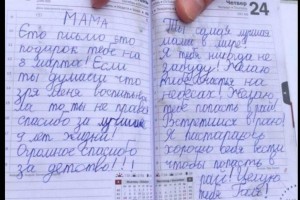 МАМА
Єто письмо это
подарок тебе на
8 марта! Если
ты думаеш что
зря меня воспитывала
то ты не права
спасибо за лучшие
9 лет жизни!
Огромное спасибо
за детство!!!
Четверг 24
Ты самая лучшая
мама в мире!
Я тебя никогда не
забуду! Желаю
тебе
на
небесах! Желаю
тебе попасть в рай!
Встретимся в раю!
Я постараюсь
хорошо себя вести
чтобы попасть в
рай! Целую
тебя